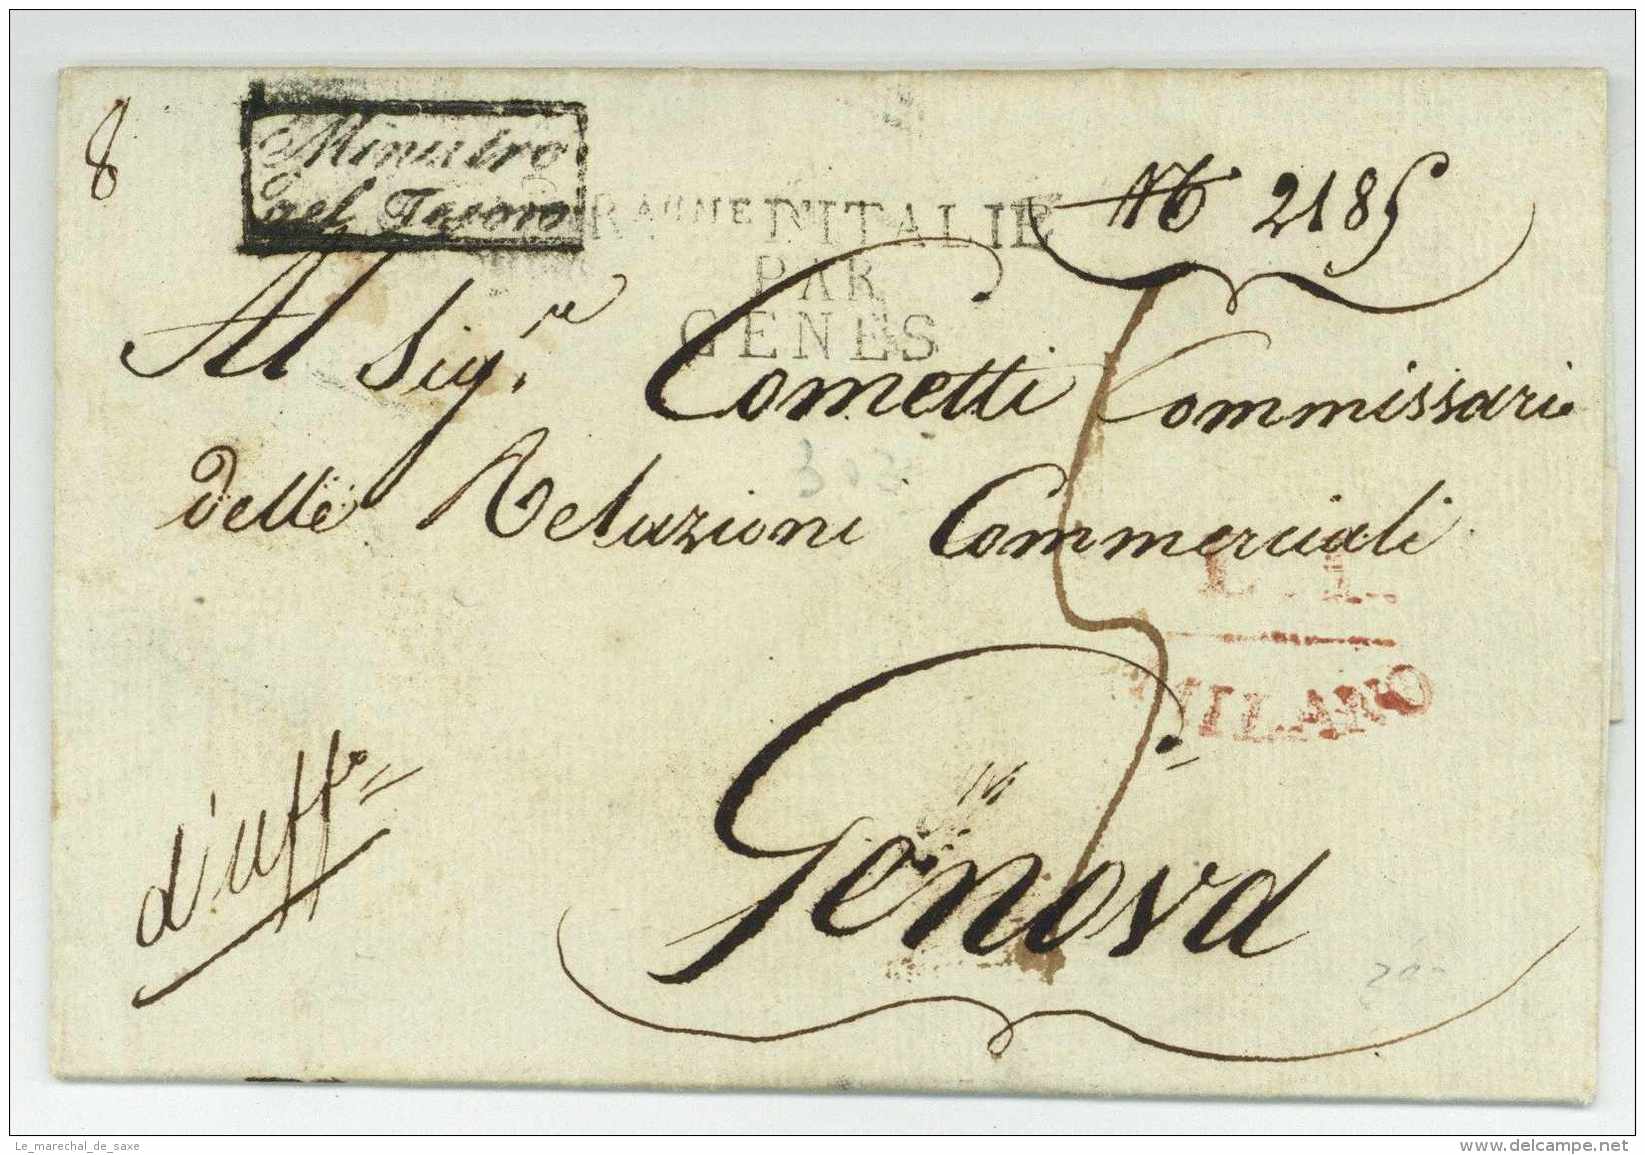 8
Ministro
del Tesoro
N° 2185
D'ITALIE
PAR
GENES
Al Sig.re Cometti Commissario
delle Relazioni Commerciali
303
L. I.
MILANO
d'uff.o
Genova
Le_marechal_de_saxe
www.delcampe.net